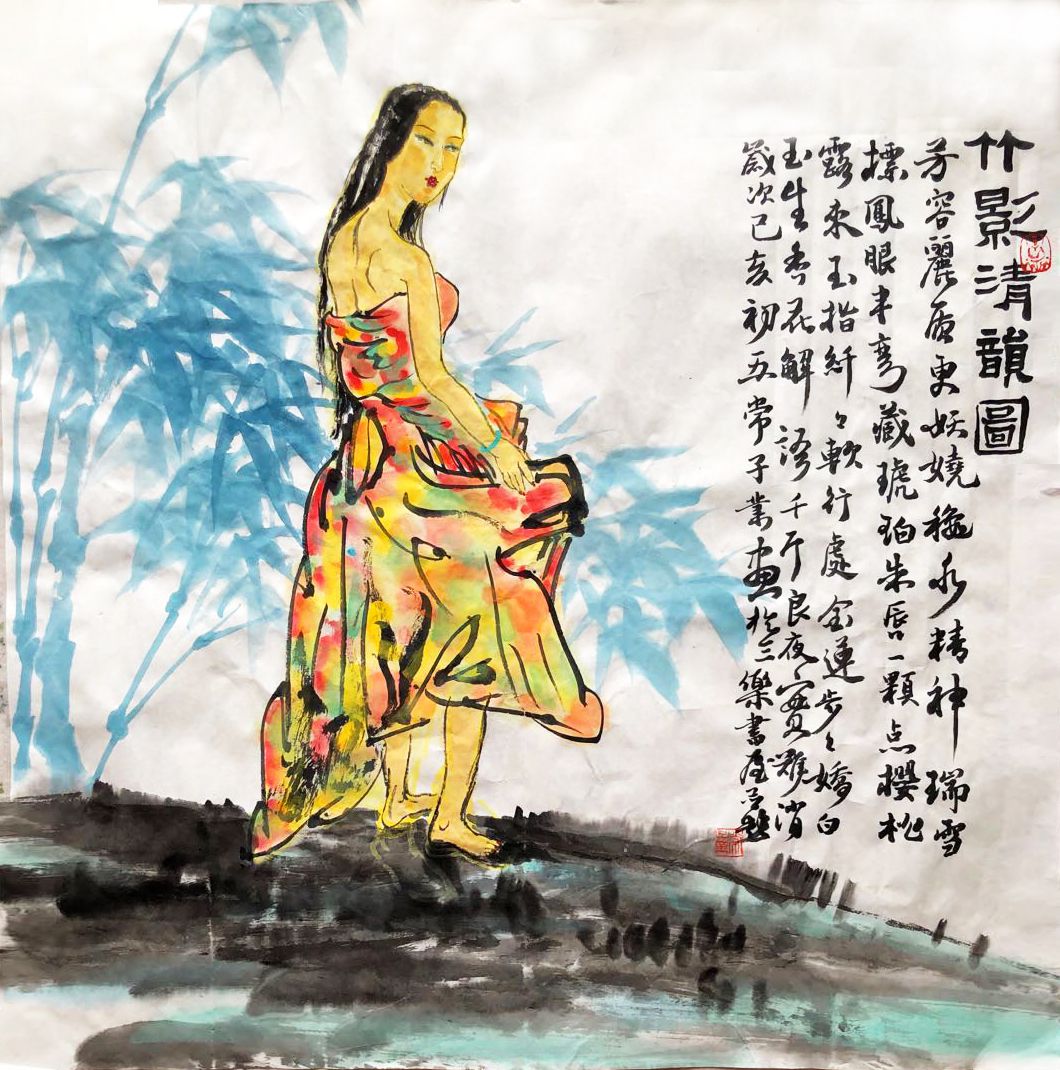 竹影清韻圖
芳容麗质更妖嬈龝水精神瑞雪
標鳳眼半彎藏琥珀朱唇一顆点櫻桃
露来玉指纤々軟行處金蓮步々嬌白
玉生香花解语千斤良夜實難消
歲次己亥初五常子業画於三樂書屋